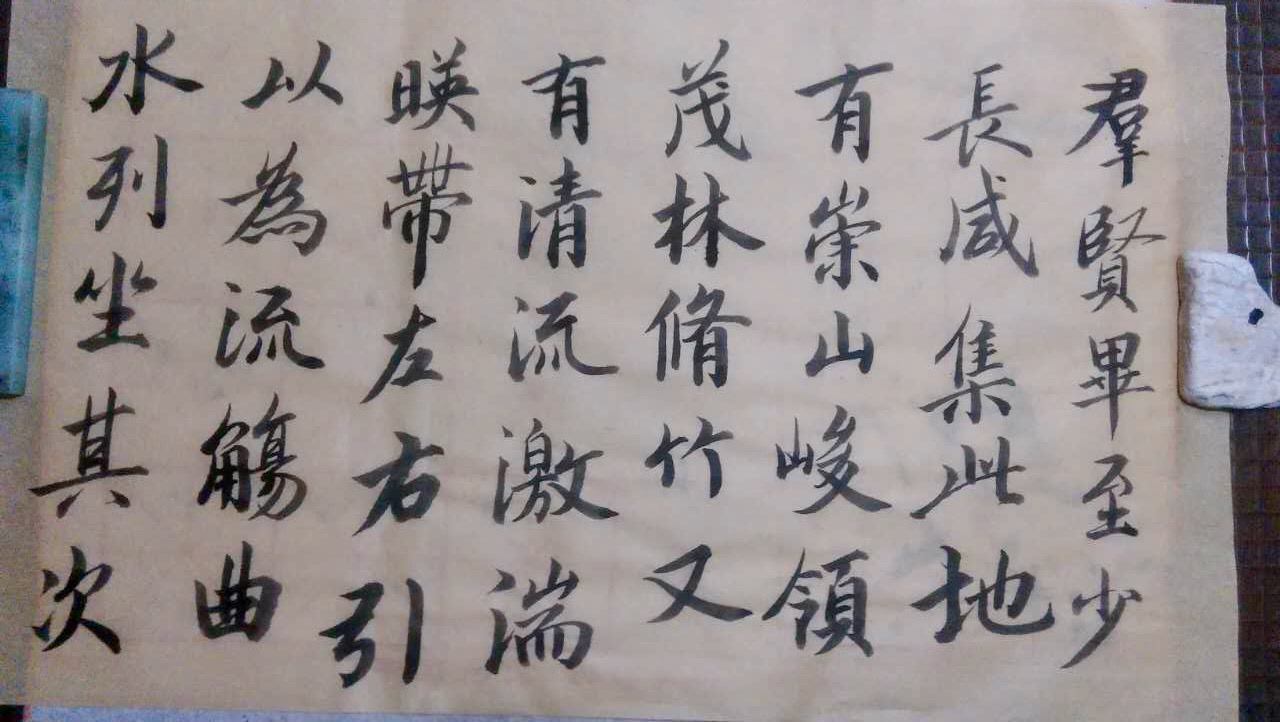 羣賢畢至少
長咸集此地
有崇山峻領
茂林脩竹又
有清流激湍
暎帶左右引
以為流觴曲
水列坐其次